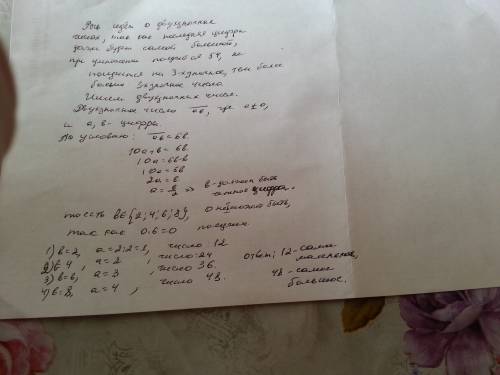 Речь идёт о двузначных
числах, так как последняя цифра
даже будет самой большой,
при умножении получится 54, не
получится на 3-хзначное, тем более
больше 3значное число.
Ищем двузначные числа.
Двузначное число ab, где a≠0,
и a, b - цифры.
По условию: ab=6b.
10a+b=6b.
10a=6b-b
10a=5b
2a=b
a=b/2 => b-должен быть
чётное цифра.
то есть b∈{2;4;6;8}, 0 не может быть,
так как 0·6=0
1) b=2, a=2:2=1, число 12
2) b=4, a=2, число 24 ответ: 12-самое
3) b=6, a=3, число 36. маленькое,
4) b=8, a=4, число 48. 48-самое
большое.